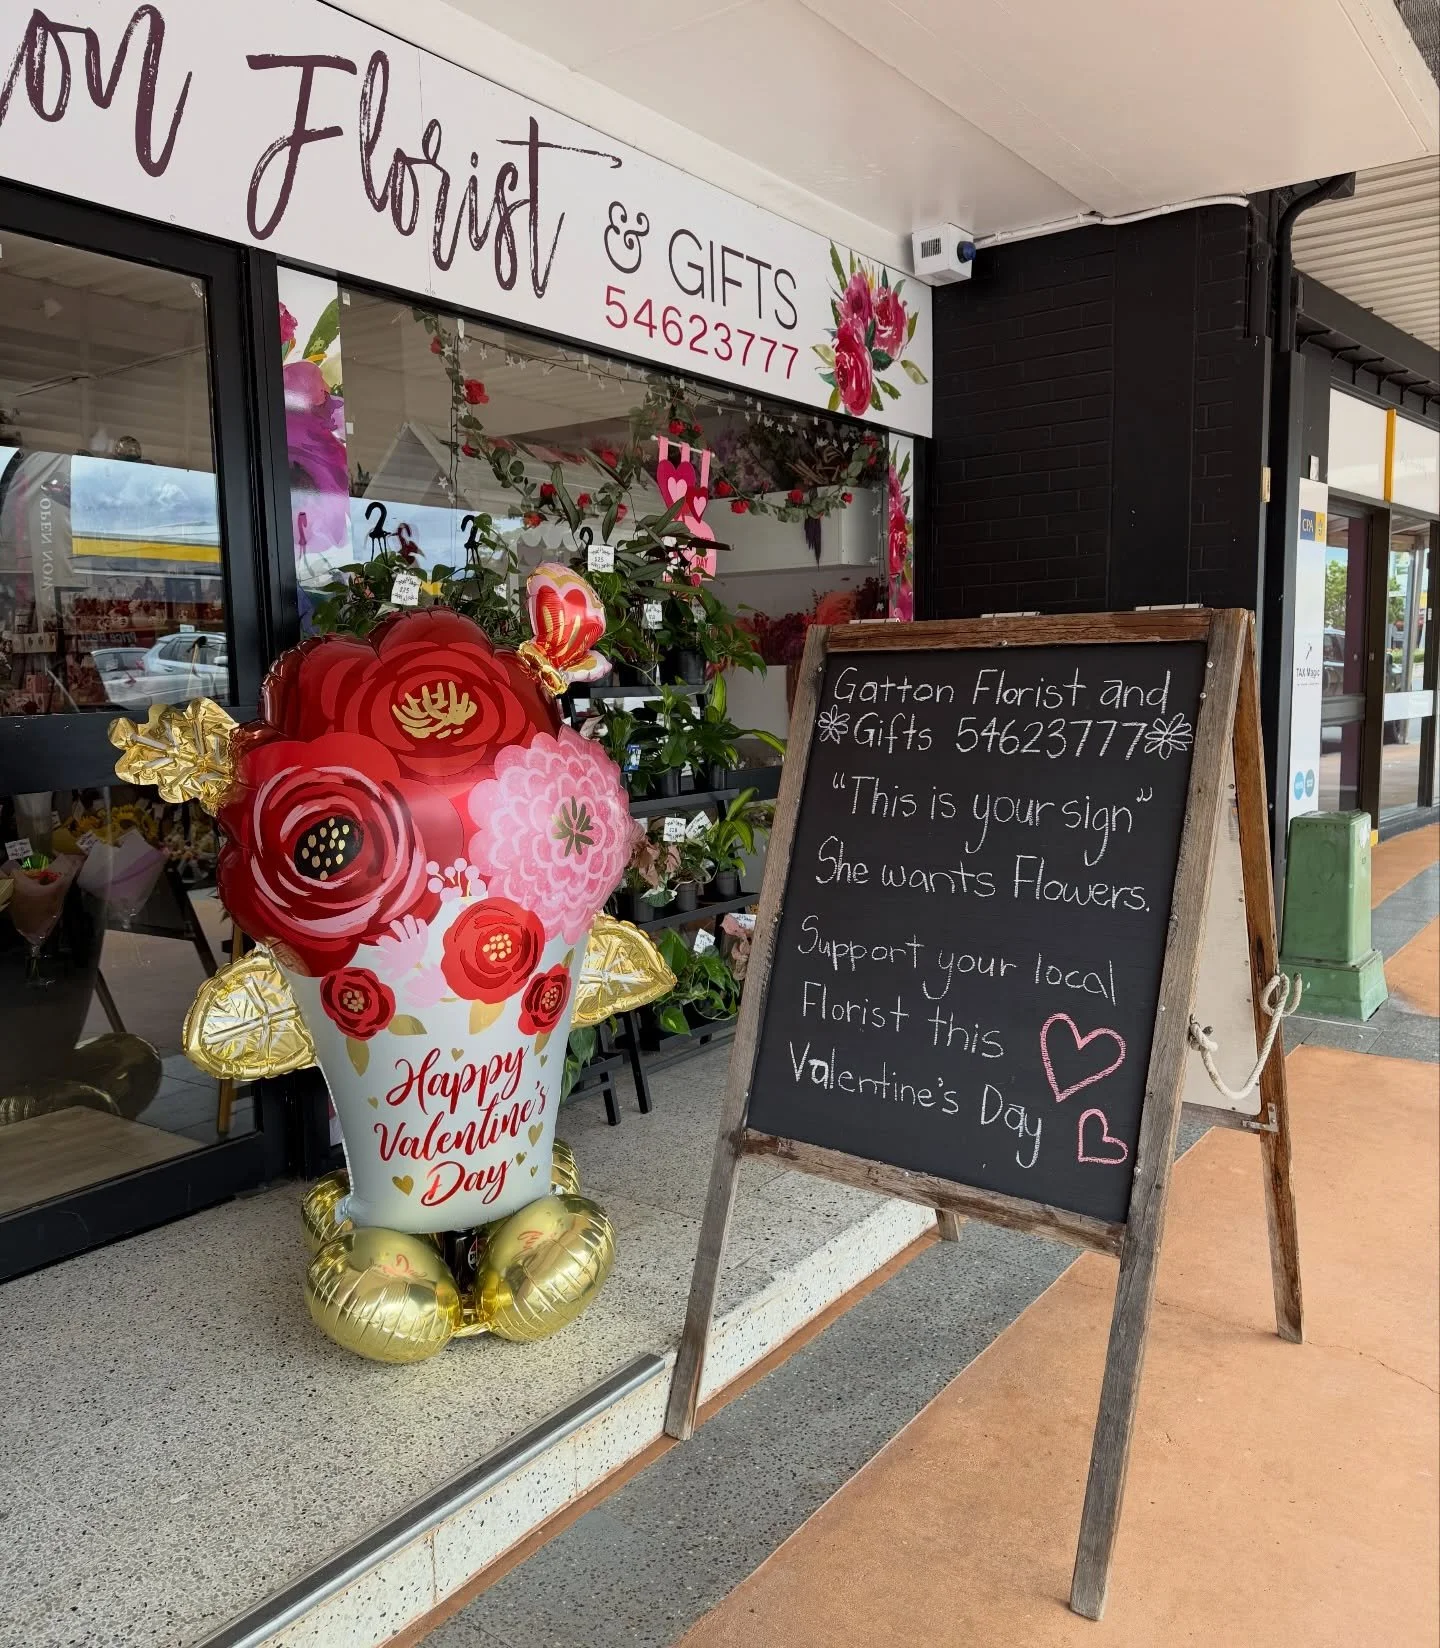 on Florist & GIFTS
54623777
OPEN NOW
DAY
$25
$25
CPA
TAX Magic
Happy
Valentine's
Day
Gatton Florist and
Gifts 54623777
"This is your sign"
She wants Flowers.
Support your local
Florist this
Valentine's Day